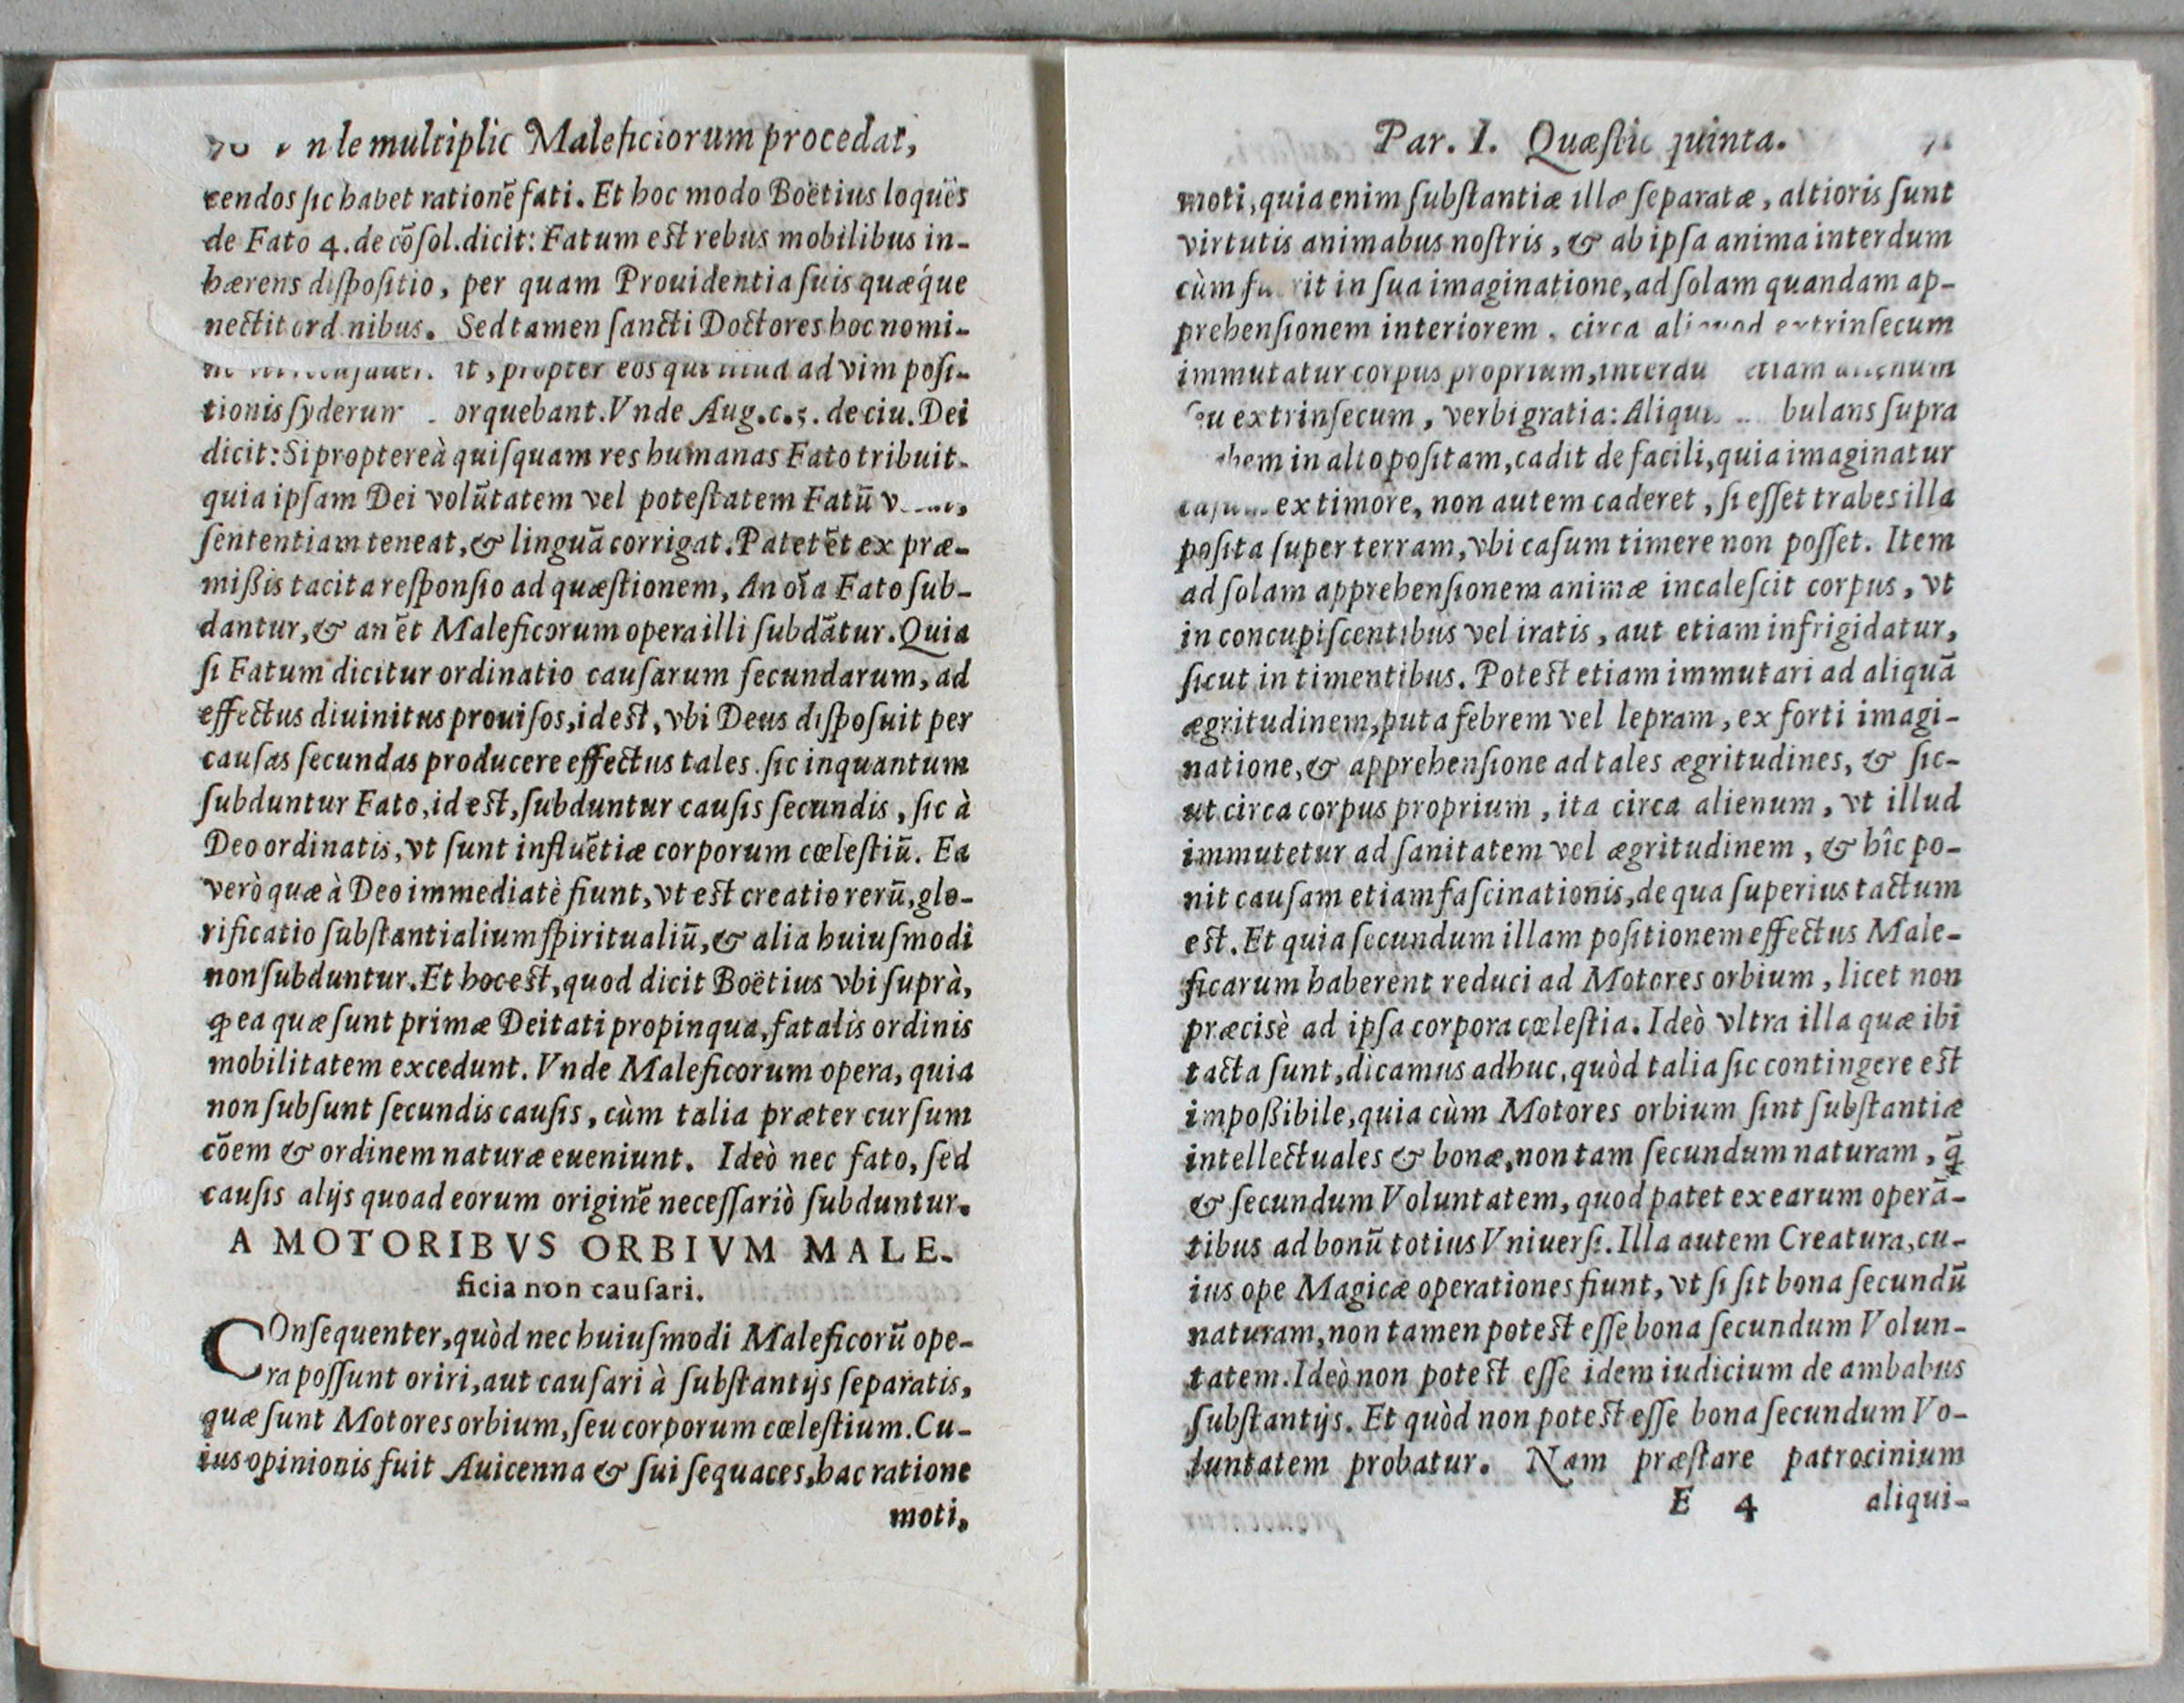 multiplic Maleficiorum procedat,
cendos sic habet rationẽ fati. Et hoc modo Boëtius loquẽs
de Fato 4. de cõsol. dicit: Fatum est rebus mobilibus in-
hærens dispositio, per quam Prouidentia suis quæque
nectit ordinibus. Sed tamen sancti Doctores hoc nomi-
propter eos qui ad vim posi-
tionis syderum orquebant. Vnde Aug. c. 5. de ciu. Dei
dicit: Si proptereà quisquam res humanas Fato tribuit.
quia ipsam Dei volũtatem vel potestatem Fatũ
sententiam teneat, & linguã corrigat. Patet ẽt ex præ-
mißis tacita responsio ad quæstionem, An oĩa Fato sub-
dantur, & an ẽt Maleficorum opera illi subdãtur. Quia
si Fatum dicitur ordinatio causarum secundarum, ad
effectus diuinitus prouisos, id est, vbi Deus disposuit per
causas secundas producere effectus tales. sic inquantum
subduntur Fato, id est, subduntur causis secundis, sic à
Deo ordinatis, vt sunt influẽtiæ corporum cœlestiũ. Ea
verò quæ à Deo immediatè fiunt, vt est creatio rerũ, glo-
rificatio substantialium spiritualiũ, & alia huiusmodi
non subduntur. Et hoc est, quod dicit Boëtius vbi suprà,
ꝙ ea quæ sunt primæ Deitati propinqua, fatalis ordinis
mobilitatem excedunt. Vnde Maleficorum opera, quia
non subsunt secundis causis, cùm talia præter cursum
cõem & ordinem naturæ eueniunt. Ideò nec fato, sed
causis alijs quoad eorum originẽ necessariò subduntur.
A MOTORIBVS ORBIVM MALE-
ficia non causari.
COnsequenter, quòd nec huiusmodi Maleficorũ ope-
ra possunt oriri, aut causari à substantijs separatis,
quæ sunt Motores orbium, seu corporum cœlestium. Cu-
ius opinionis fuit Auicenna & sui sequaces, hac ratione
moti,
Par. I. Quæstio quinta.
moti, quia enim substantiæ illæ separatæ, altioris sunt
virtutis animabus nostris, & ab ipsa anima interdum
cùm in sua imaginatione, ad solam quandam ap-
prehensionem interiorem, circa aliquod extrinsecum
immutatur corpus proprium, interdu etiam alienum
seu extrinsecum, verbi gratia: Aliquis bulans supra
in alto positam, cadit de facili, quia imaginatur
ex timore, non autem caderet, si esset trabes illa
posita super terram, vbi casum timere non posset. Item
ad solam apprehensionem animæ incalescit corpus, vt
in concupiscentibus vel iratis, aut etiam infrigidatur,
sicut in timentibus. Potest etiam immutari ad aliquã
ægritudinem, puta febrem vel lepram, ex forti imagi-
natione, & apprehensione ad tales ægritudines, & sic-
ut circa corpus proprium, ita circa alienum, vt illud
immutetur ad sanitatem vel ægritudinem, & hîc po-
nit causam etiam fascinationis, de qua superius tactum
est. Et quia secundum illam positionem effectus Male-
ficarum haberent reduci ad Motores orbium, licet non
præcisè ad ipsa corpora cœlestia. Ideò vltra illa quæ ibi
tacta sunt, dicamus adhuc, quòd talia sic contingere est
impoßibile, quia cùm Motores orbium sint substantiæ
intellectuales & bonæ, non tam secundum naturam, q̃
& secundum Voluntatem, quod patet ex earum operã-
tibus ad bonũ totius Vniuersi. Illa autem Creatura, cu-
ius ope Magicæ operationes fiunt, vt si sit bona secundũ
naturam, non tamen potest esse bona secundum Volun-
tatem. Ideò non potest esse idem iudicium de ambabus
substantijs. Et quòd non potest esse bona secundum Vo-
luntatem probatur. Nam præstare patrocinium
E 4 aliqui-